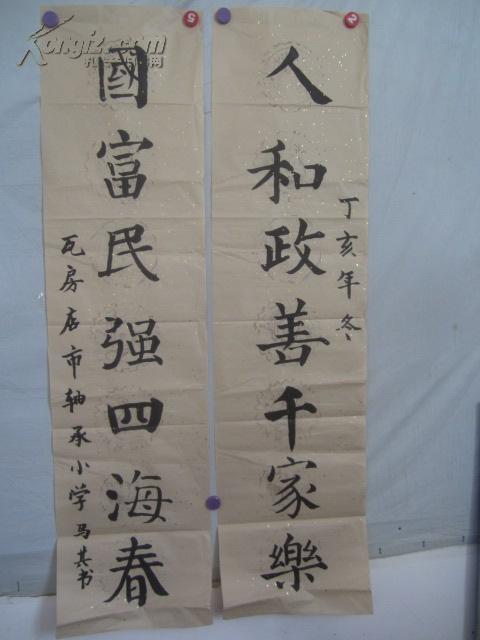 丁亥年冬
人和政善千家樂
國富民强四海春
瓦房店市轴承小学马其书
Kongfz.com
孔夫子旧书网
5
2